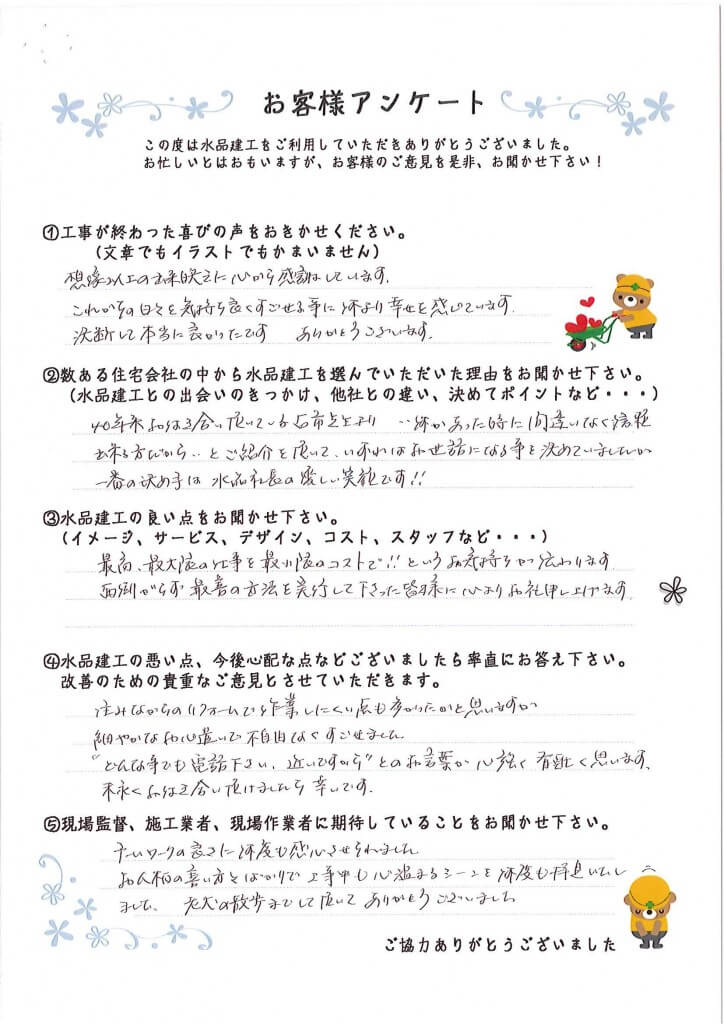 お客様アンケート
この度は水品建工をご利用していただきありがとうございました。
お忙しいとはおもいますが、お客様のご意見を是非、お聞かせ下さい！
①工事が終わった喜びの声をおきかせください。
（文章でもイラストでもかまいません）
想像以上の出来映えに心から感謝しています。
これからの日々を気持ち良くすごせる事に何より幸せを感じています。
決断して本当に良かったです ありがとうございます。
②数ある住宅会社の中から水品建工を選んでいただいた理由をお聞かせ下さい。
（水品建工との出会いのきっかけ、他社との違い、決めてポイントなど・・・）
40年来お付き合い頂いている より ‥何かあった時に間違いなく信頼
出来る方だから‥とご紹介を頂いて、いずれはお世話になる事を決めていましたが
一番の決め手は 水品社長の優しい笑顔です!!
③水品建工の良い点をお聞かせ下さい。
（イメージ、サービス、デザイン、コスト、スタッフなど・・・）
最高、最大限の仕事を最小限のコストで!! というお気持ちが伝わります
面倒がらず最善の方法を実行して下さった皆様に心よりお礼申し上げます
④水品建工の悪い点、今後心配な点などございましたら率直にお答え下さい。
改善のための貴重なご意見とさせていただきます。
住みながらのリフォームで作業しにくい点も多かったかと思いますが
細やかなお心遣いで不自由なくすごせました
"どんな事でも電話下さい、近いですから"とのお言葉が心強く有難く思います、
末永くお付き合い頂けましたら幸いです。
⑤現場監督、施工業者、現場作業者に期待していることをお聞かせ下さい。
チームワークの良さに何度も感心させられました
お人柄の良い方々ばかりで工事中も心温まるシーンを何度も拝見いたし
ました、 老犬の散歩までして頂いて ありがとうございました
ご協力ありがとうございました